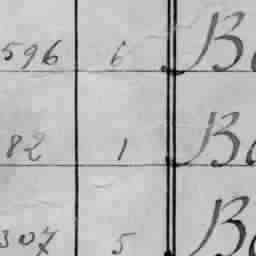 596 6 Ba
82 1 Ba
307 5 Ba